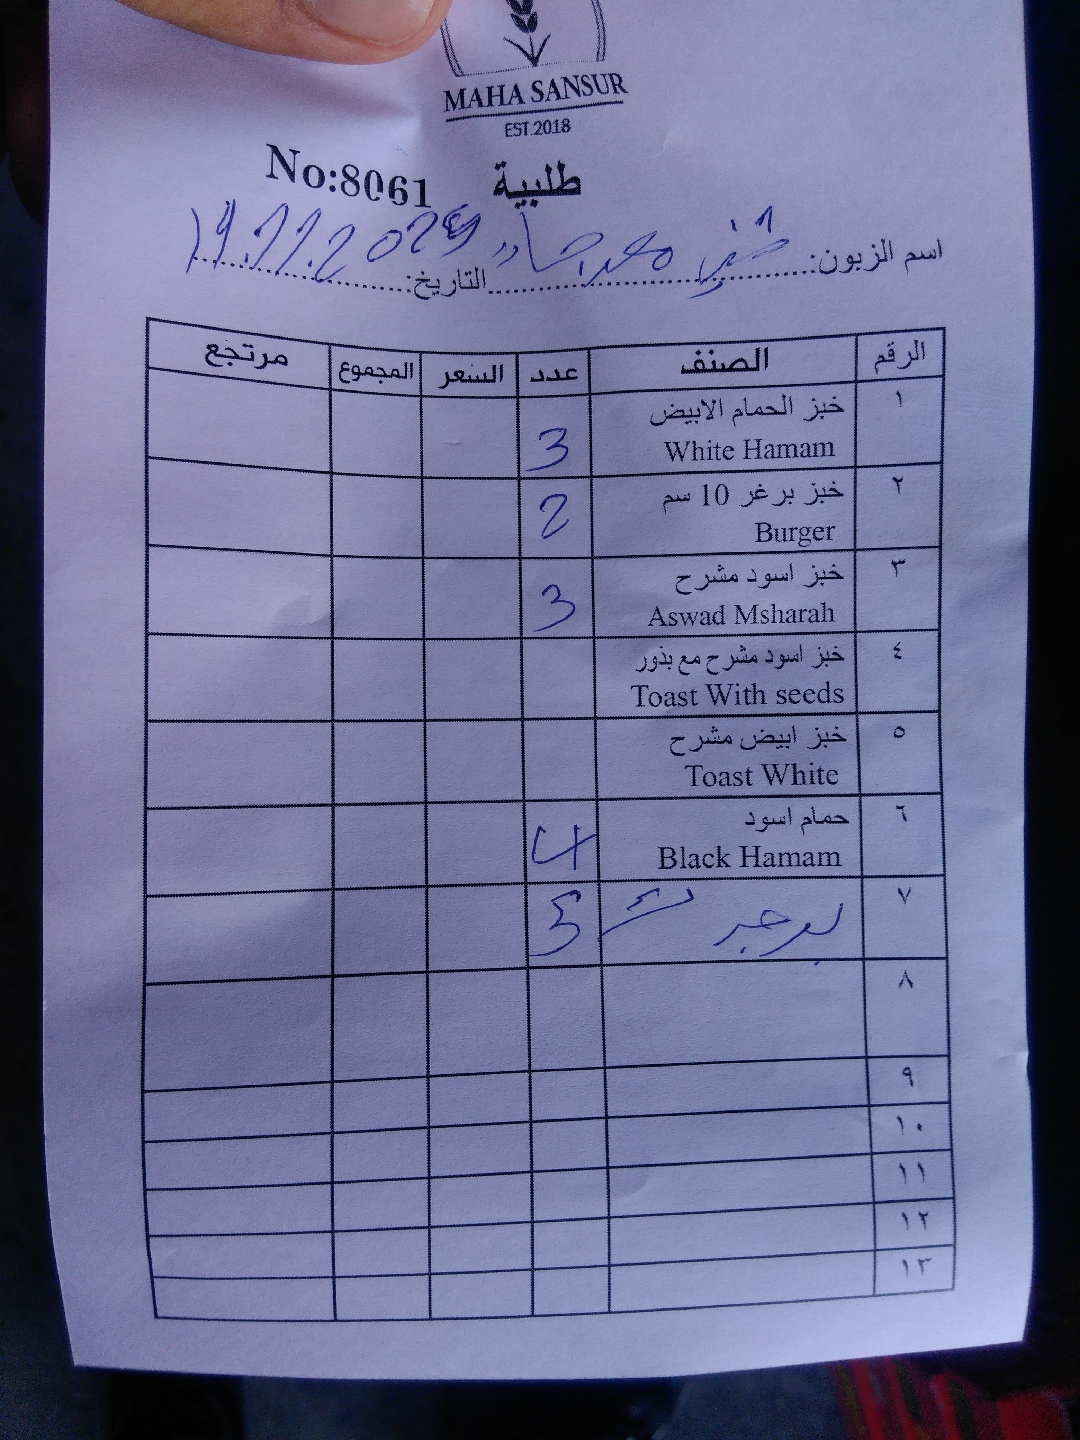 MAHA SANSUR
EST.2018
No:8061 طلبية
اسم الزبون: التاريخ:
الرقم الصنف عدد السعر المجموع مرتجع
١ خبز الحمام الابيض
White Hamam 3
٢ خبز برغر 10 سم
Burger 2
٣ خبز اسود مشرح
Aswad Msharah 3
٤ خبز اسود مشرح مع بذور
Toast With seeds
٥ خبز ابيض مشرح
Toast White
٦ حمام اسود
Black Hamam 4
٧
٨
٩
١٠
١١
١٢
١٣